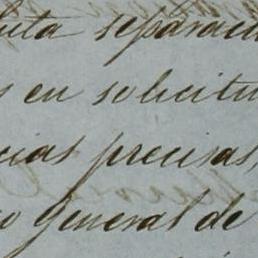 separaci
s en solicitu
cias precisas,
o General de